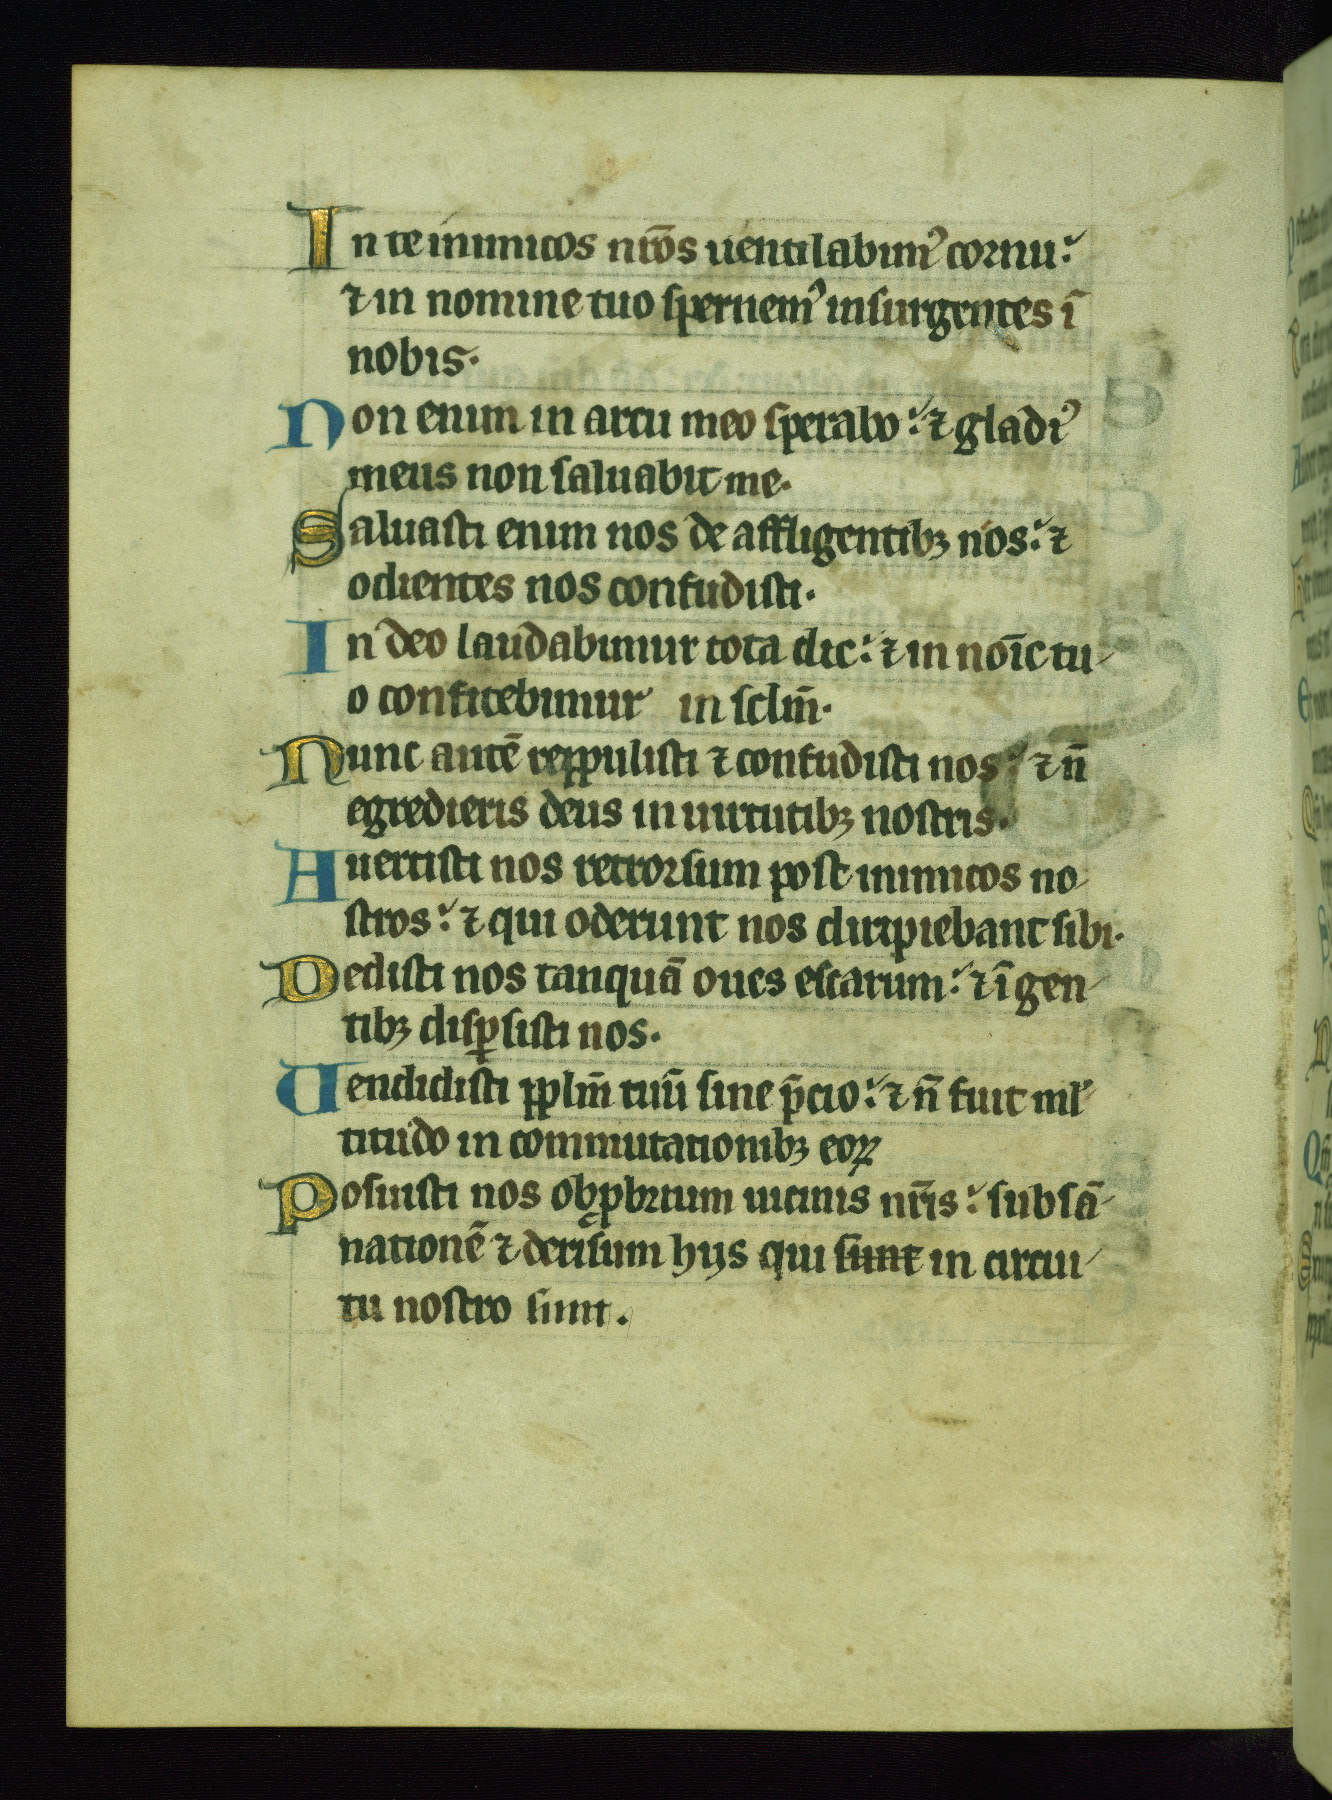 In te inimicos nr̄os uentilabimꝰ cornu:
⁊ in nomine tuo spernemꝰ insurgentes ī
nobis.
Non enim in arcu meo sperabo: ⁊ gladiꝰ
meus non saluabit me.
Saluasti enim nos de affligentibꝫ nos: ⁊
odientes nos confudisti.
In deo laudabimur tota die: ⁊ in no͞ie tu
o confitebimur in sclm̄.
Nunc autē reppulisti ⁊ confudisti nos: ⁊ n̄
egredieris deus in uirtutibꝫ nostris.
Auertisti nos retrorsum post inimicos no
stros: ⁊ qui oderunt nos diripiebant sibi.
Dedisti nos tanquā oues escarum: ⁊ ī gen
tibꝫ disꝑsisti nos.
Uendidisti pplm̄ tuū sine p̄cio: ⁊ n̄ fuit ml
titudo in commutationibꝫ eoꝝ
Posuisti nos obꝓbrium uicinis nr̄is: subsā
nationē ⁊ derisum hijs qui sunt in circui
tu nostro sunt.